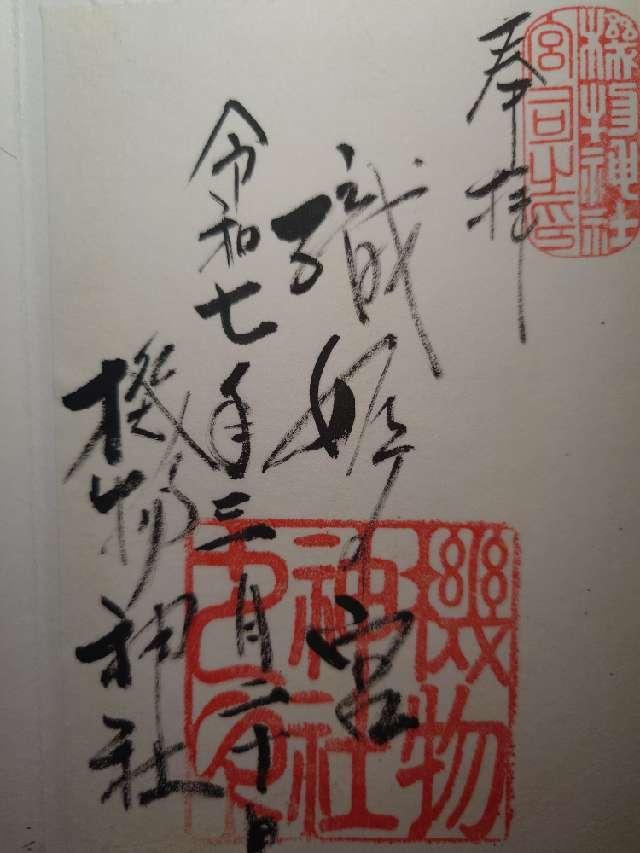 機物神社
宮司之印
奉拝
織姫宮
令和七年三月二十日
機物神社
機物
神社